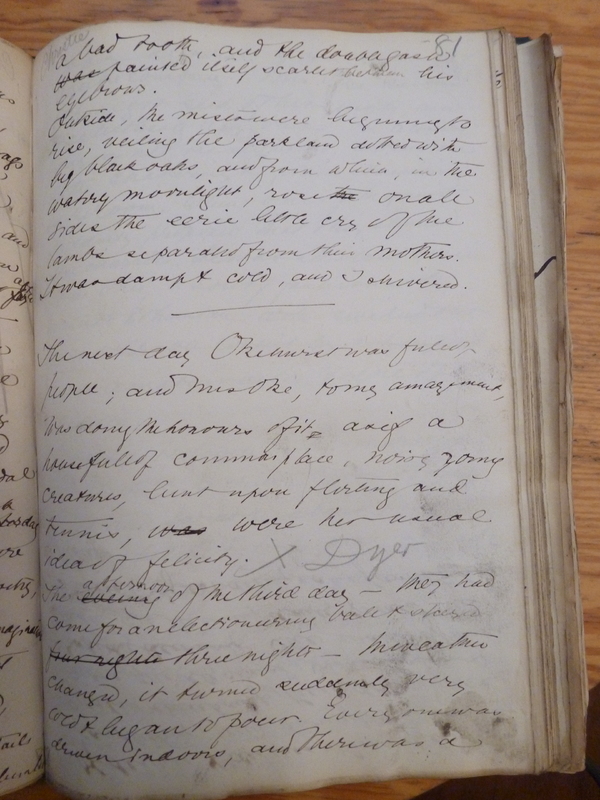 Christie 81
a bad tooth, and the double gash
was painted itself scarlet between his
eyebrows.
Outside, the mists were beginning to
rise, veiling the park land dotted with
big black oaks, and from which, in the
watery moonlight, rose the on all
sides the eerie little cry of the
lambs separated from their mothers.
It was damp & cold, and I shivered.
The next day Okehurst was full of
people; and Mrs Oke, to my amazement,
was doing the honours of it, as if a
house full of commonplace, noisy young
creatures, bent upon flirting and
tennis, was were her usual
idea of felicity. X Dyer
afternoon
The evening of the third day — they had
come for an electioneering ball & stayed
four nights three nights — the weather
changed, it turned suddenly very
cold & began to pour. Every one was
driven indoors, and there was a